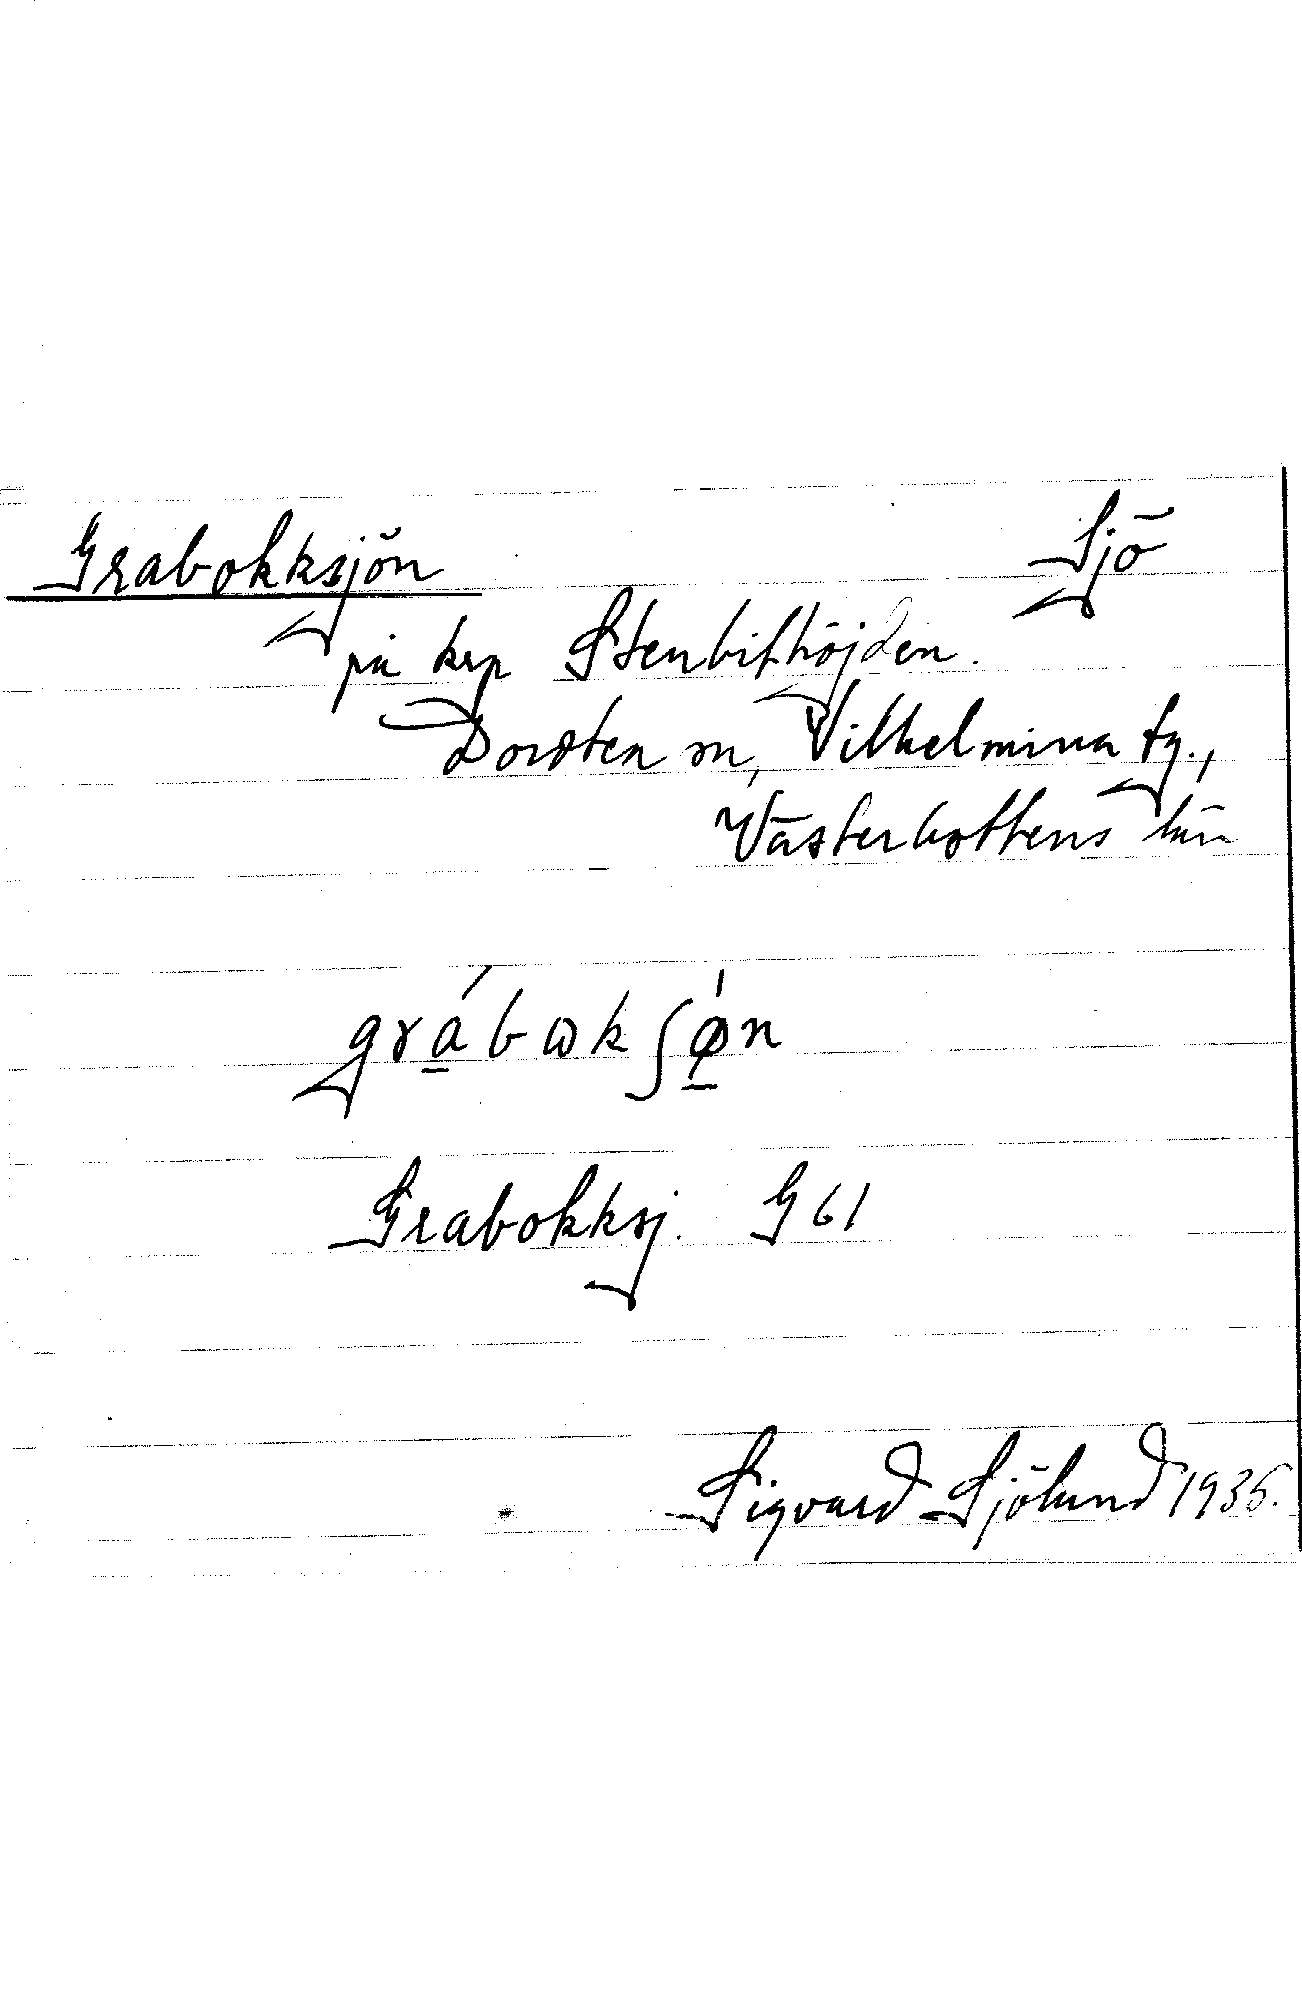 Grabokksjön Sjö
på krp Stenbithöjden.
Dorotea sn, Vilhelmina tg.,
Västerbottens län
grábωkʃø̍n
Grabokksj. G 61
Sigvard Sjölund 1936.